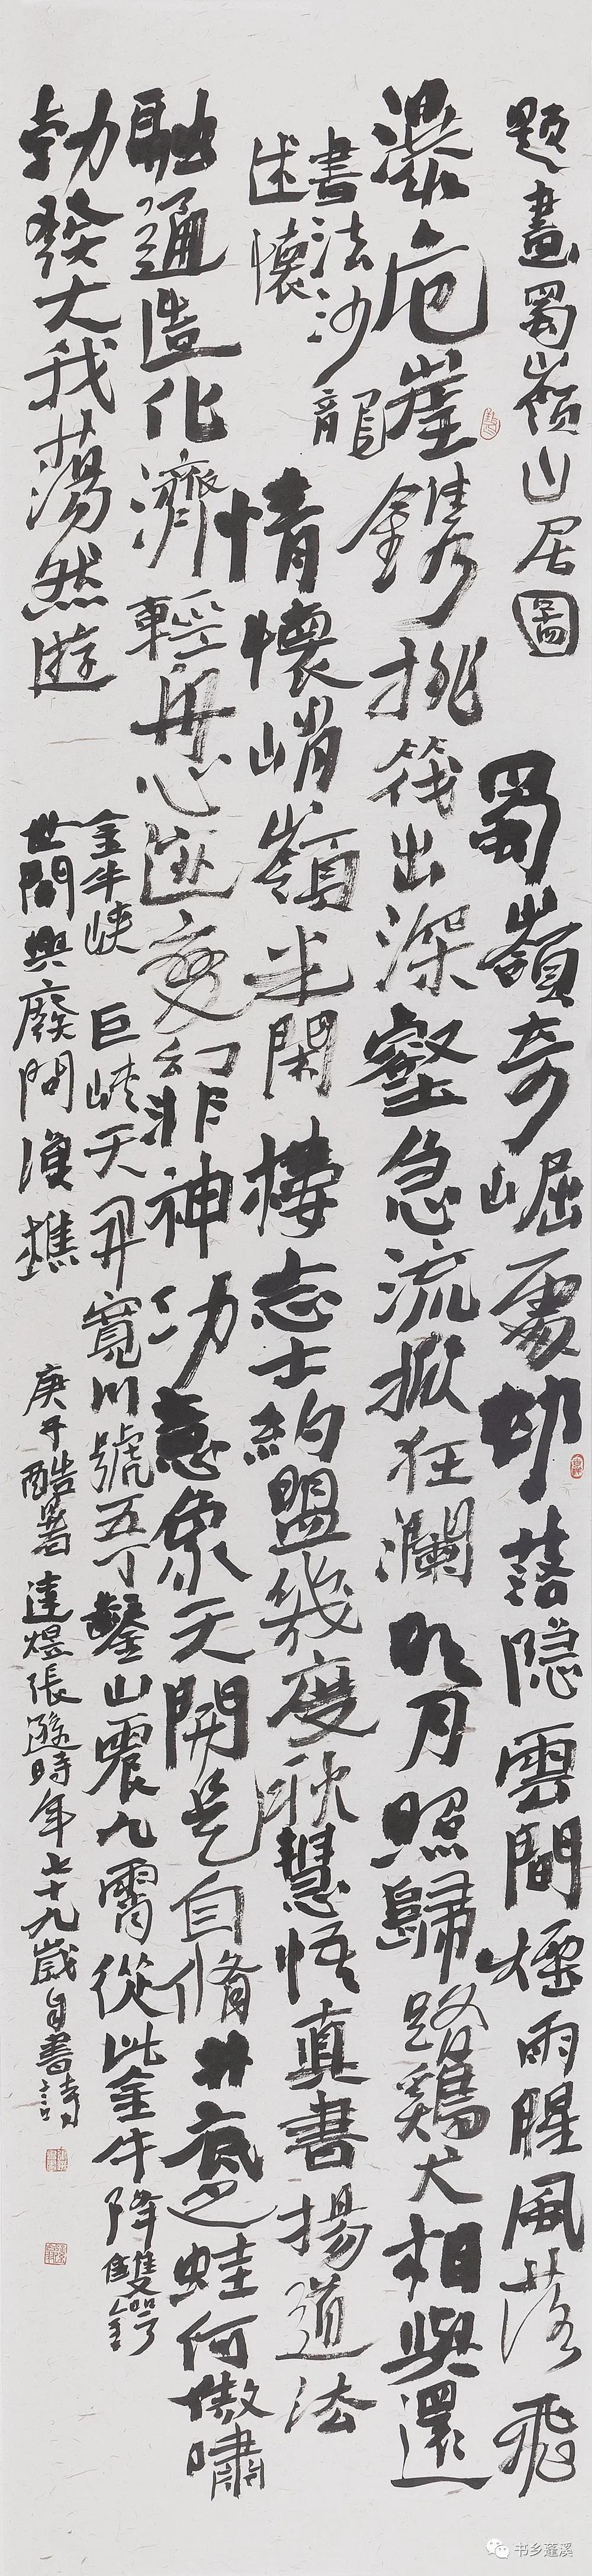 題畫蜀嶺山居圖 蜀嶺奇崛處邨落隱雲間煙雨腥風落飛
瀑危崖鐫挑筏出深壑急流掀狂瀾明月照歸路鷄犬相與還
書法沙龍
述懷
情懷峭嶺半閑樓志士約盟幾度秋慧悟真書揚道法
融通造化濟輕舟心逐變幻非神功意象天開是自脩井底之蛙何傲嘯
勃發大我蕩然遊
金牛峽 巨峽天開寬川號五丁鑿山震九霄從此金牛降雙鍔
世間興廢問漁樵 庚子酷暑達煜張遊時年七十九歲自書詩
书乡蓬溪